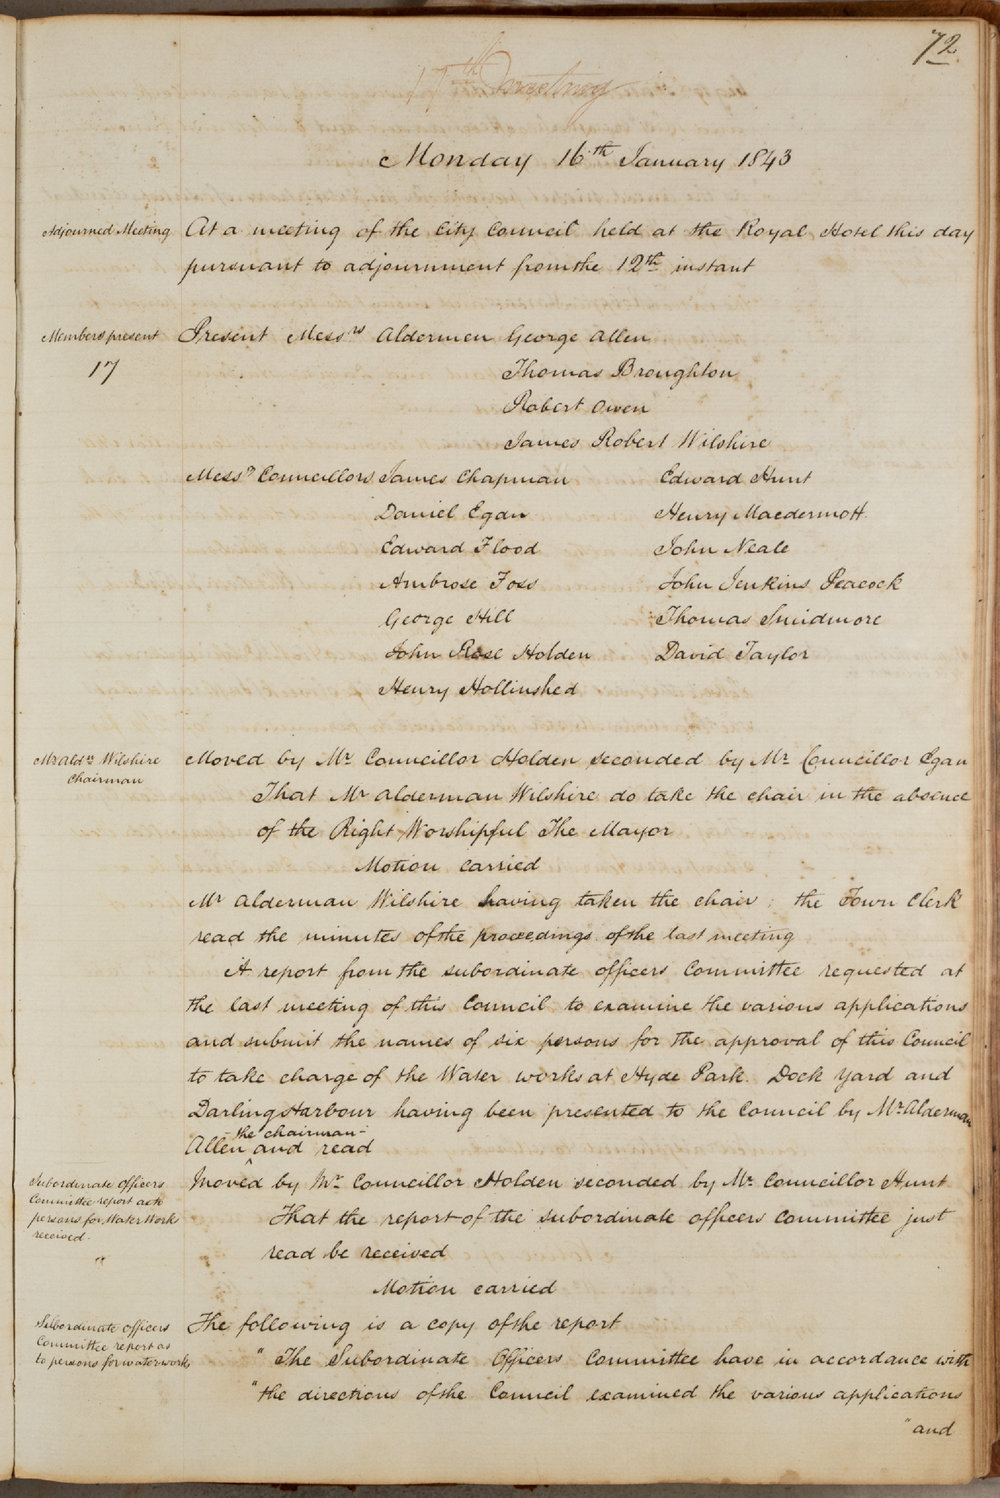 72
17th Meeting
Monday 16th January 1843
Adjourned Meeting
At a meeting of the City Council held at the Royal Hotel this day
pursuant to adjournment from the 12th instant
Members present
17
Present Messrs Aldermen George Allen
Thomas Broughton
Robert Owen
James Robert Wilshire
Messrs Councillors James Chapman Edward Hunt
Daniel Egan Henry Macdermott
Edward Flood John Neale
Ambrose Foss John Jenkins Peacock
George Hill Thomas Smidmore
John Rose Holden David Taylor
Henry Hollinshed
Mr Aldn Wilshire
Chairman
Moved by Mr Councillor Holden seconded by Mr Councillor Egan
That Mr Alderman Wilshire do take the chair in the absence
of the Right Worshipful The Mayor
Motion carried
Mr Alderman Wilshire having taken the chair; the Town Clerk
read the minutes of the proceedings of the last meeting
A report from the subordinate officers Committee requested at
the last meeting of this Council to examine the various applications
and submit the names of six persons for the approval of this Council
to take charge of the Water works at Hyde Park. Dock Yard and
Darling Harbour having been presented to the Council by Mr Alderman
- the chairman -
Allen ^ and read
Subordinate Officers
Committee report as to
persons for Water Works
received.
"
Moved by Mr Councillor Holden seconded by Mr Councillor Hunt
That the report of the subordinate officers Committee just
read be received
Motion carried
Subordinate officers
Committee report as
to persons for water works
The following is a copy of the report
" The Subordinate Officers Committee have in accordance with
" the directions of the Council examined the various applications
" and